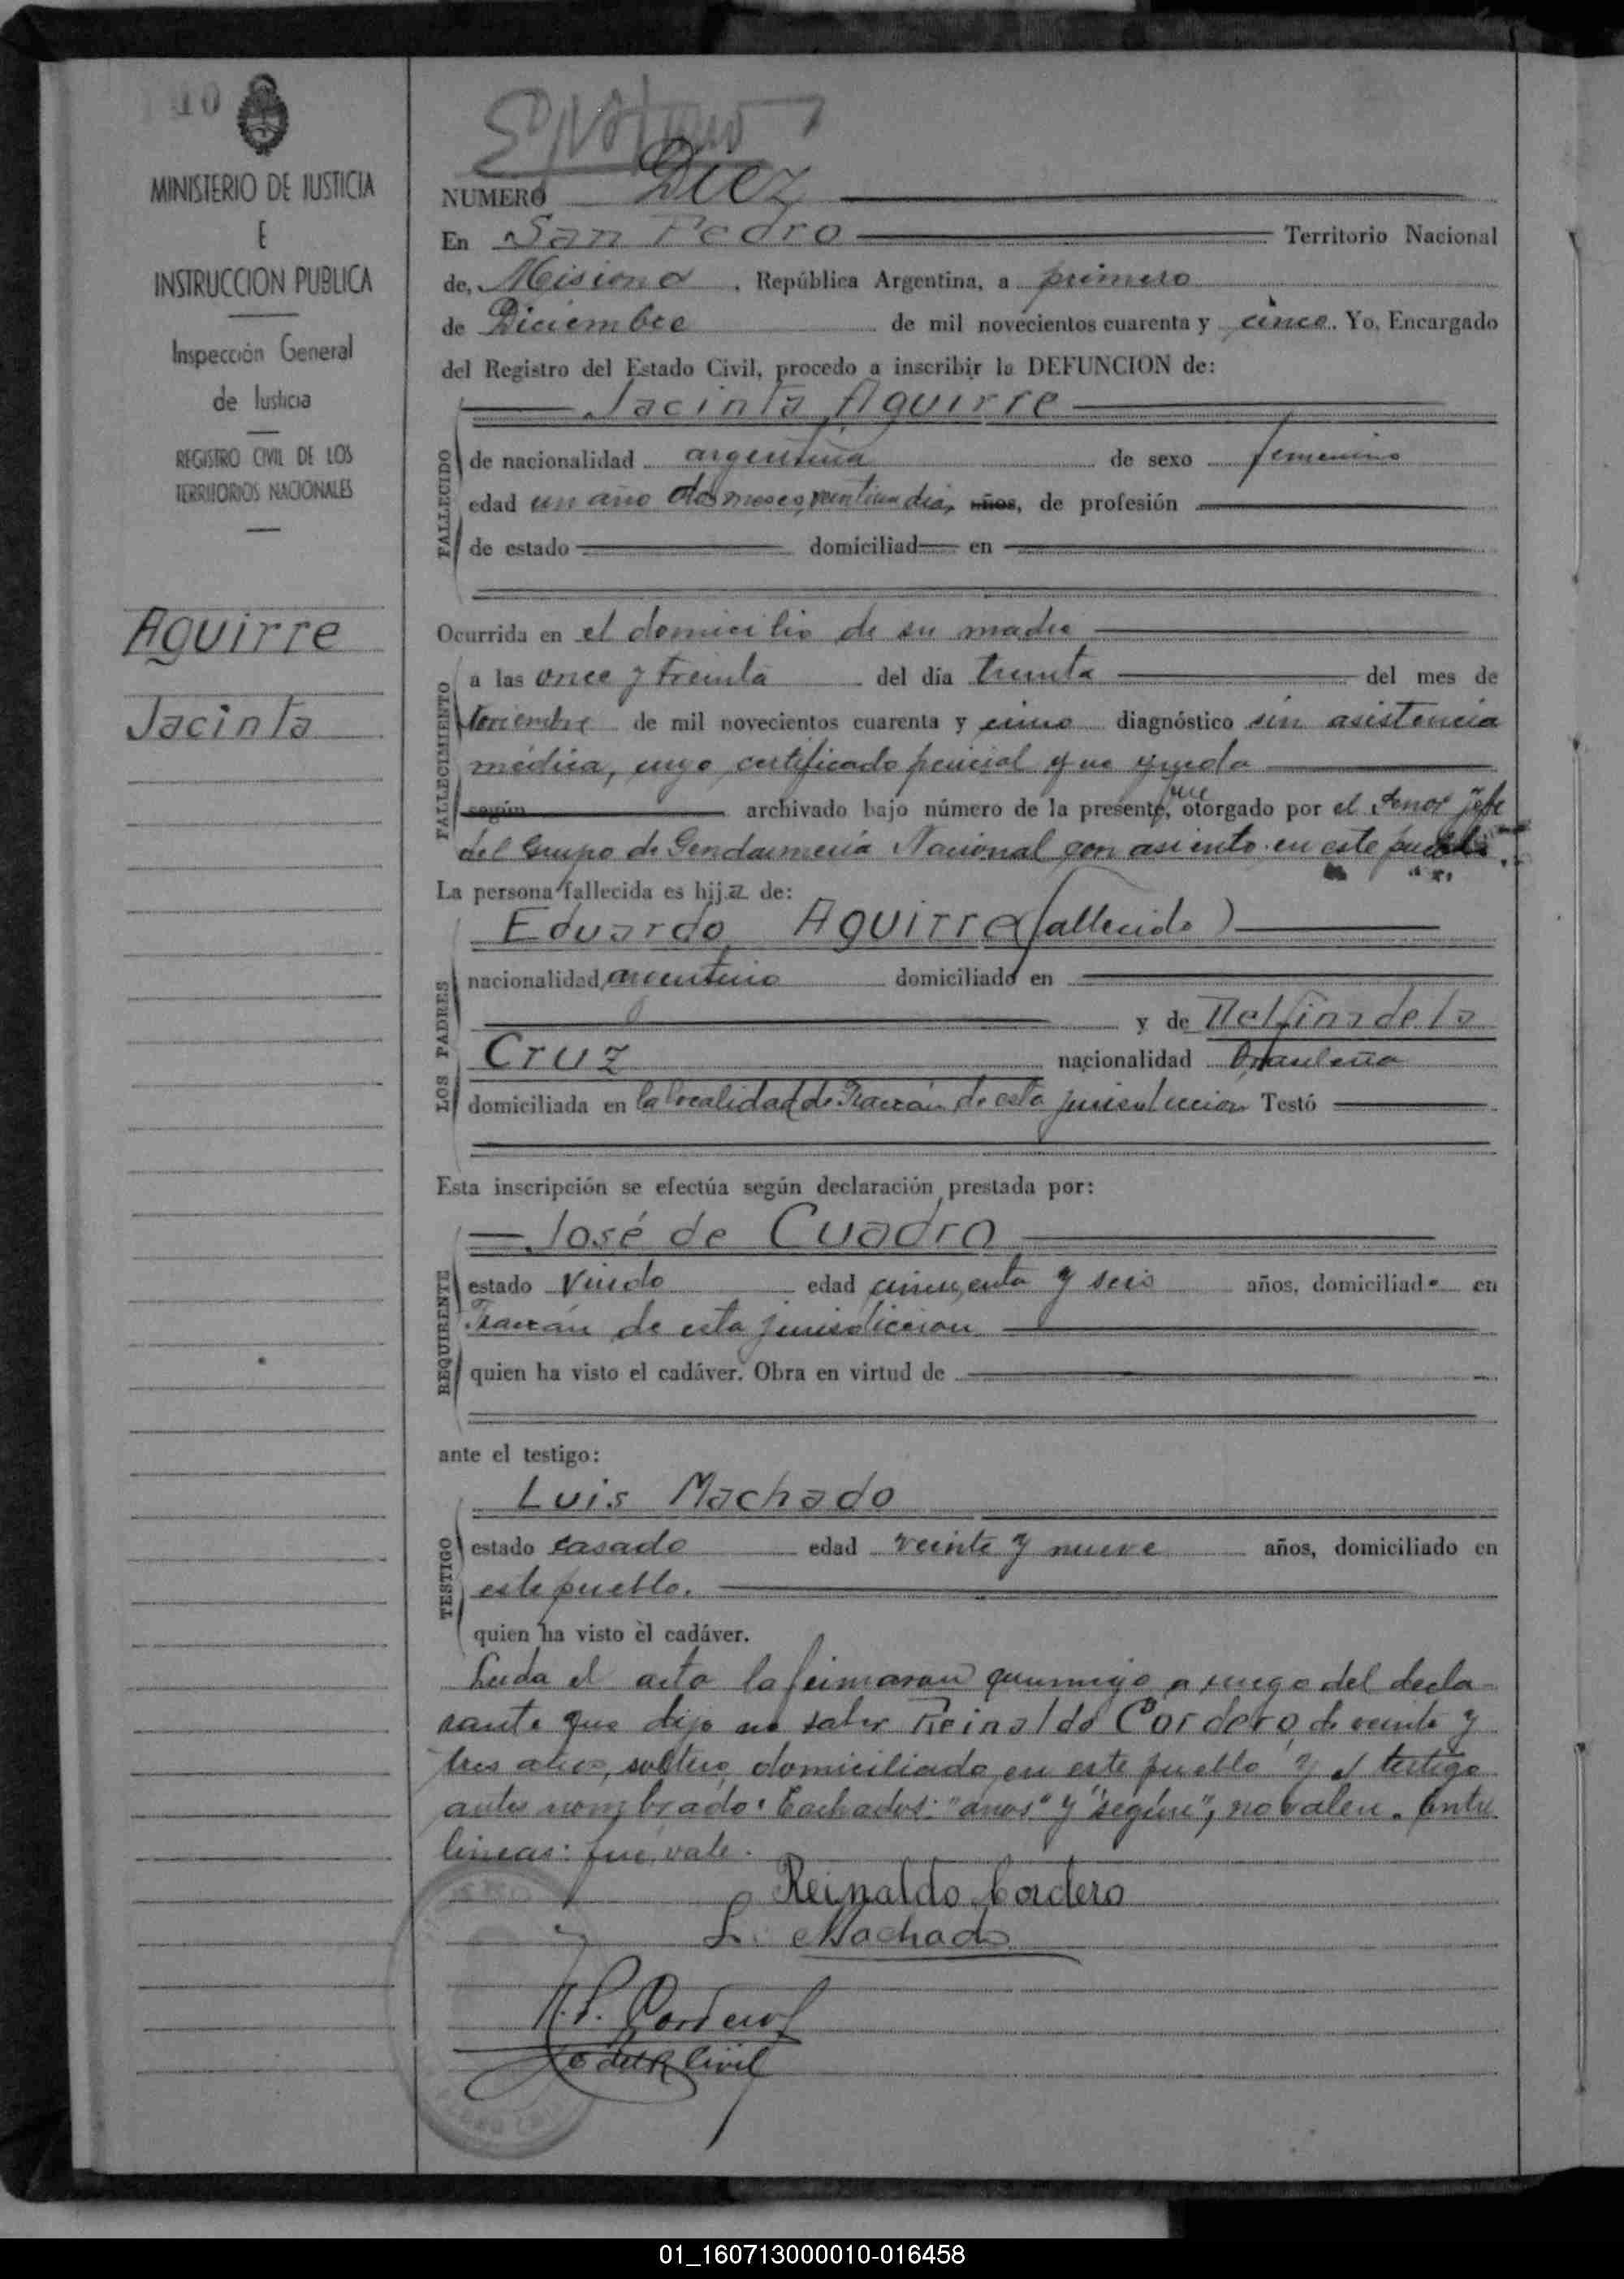 10
MINISTERIO DE JUSTICIA
E
INSTRUCCION PUBLICA
Inspección General
de Justicia
REGISTRO CIVIL DE LOS
TERRITORIOS NACIONALES
Aguirre
Jacinta
NUMERO Diez
En San Pedro Territorio Nacional
de, Misiones, República Argentina, a primero
de Diciembre de mil novecientos cuarenta y cinco. Yo, Encargado
del Registro del Estado Civil, procedo a inscribir la DEFUNCION de:
Jacinta Aguirre
FALLECIDO
de nacionalidad argentina de sexo femenino
edad un año dos meses, veintiun dias, años, de profesión
de estado domiciliad en
Ocurrida en el domicilio de su madre
FALLECIMIENTO
a las once y treinta del día treinta del mes de
Noviembre de mil novecientos cuarenta y cinco diagnóstico sin asistencia
médica, cuyo certificado policial que queda
según archivado bajo número de la presente, fue otorgado por el Señor Jefe
del Grupo de Gendarmería Nacional con asiento en este pueblo.
La persona fallecida es hija de:
LOS PADRES
Eduardo Aguirre (fallecido)
nacionalidad argentino domiciliado en
y de Delfina de la
Cruz nacionalidad brasileña
domiciliada en la localidad de Fracrán de esta jurisdiccion Testó
Esta inscripción se efectúa según declaración prestada por:
José de Cuadro
REQUIRENTE
estado viudo edad cincuenta y seis años, domiciliado en
Fracrán de esta jurisdiccion
quien ha visto el cadáver. Obra en virtud de
ante el testigo:
Luis Machado
TESTIGO
estado casado edad veinte y nueve años, domiciliado en
este pueblo.
quien ha visto el cadáver.
Leida el acta la firmaron conmigo a ruego del decla-
rante que dijo no saber Reinaldo Cordero, de veinte y
tres años, soltero, domiciliado en este pueblo y el testigo
antes nombrado. Tachados: "años" y "según", no valen. Entre
lineas: fue, vale.
Reinaldo Cordero
L. Machado
Cordero
del R. Civil
01_160713000010-016458